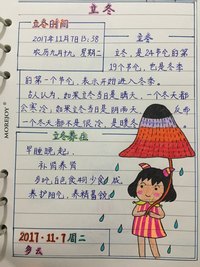 立冬
立冬时间
2017年11月7日13:38
农历九月十九，星期二
立冬
立冬，是24节气的第
19个节气，也是冬季
的第一个节气，表示开始进入冬季。
古人认为，如果立冬当日是晴天，一个冬天都
会寒冷，如果立冬当日是阴雨天
一个冬天都不是很冷，是暖冬
立冬养生
早睡晚起，
补肾养肾
多吃白色食物少食咸
养护阳气，养精蓄锐
2017·11·7 周二
多云
MOREJOY